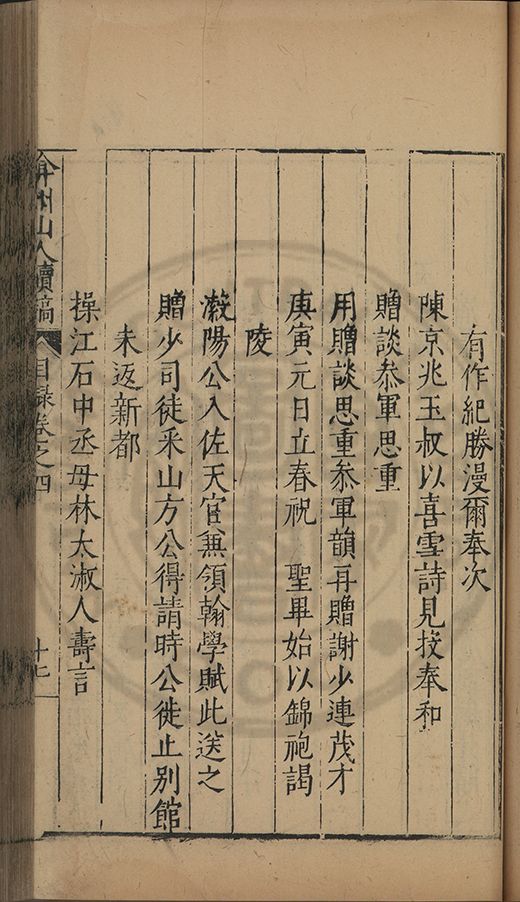 有作紀勝漫爾奉次
陳京兆玉叔以喜雪詩見投奉和
贈談叅軍思重
用贈談思重叅軍韻再贈謝少連茂才
庚寅元日立春祝　聖畢始以錦袍謁
陵
瀫陽公入佐天官兼領翰學賦此送之
贈少司徒采山方公得請時公徙止別館
未返新都
操江石中丞母林太淑人壽言
弇州山人續稿
目錄卷之四
十七